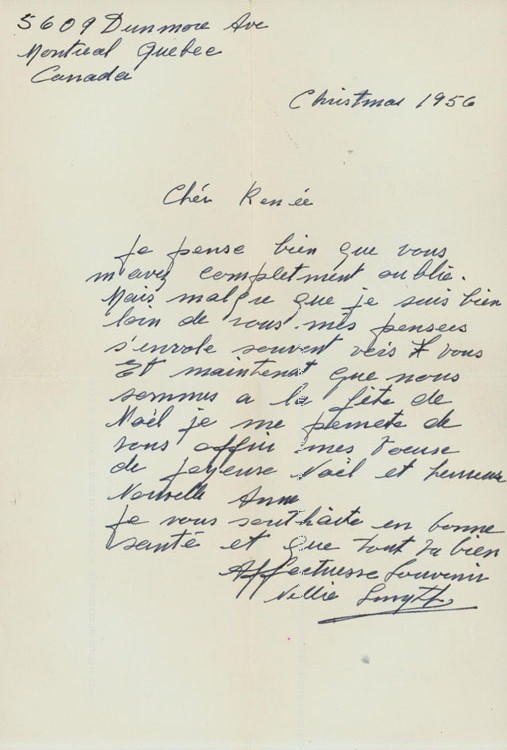 5609 Dunmore Ave
Montreal Quebec
Canada
Christmas 1956
Chér Renée
Je pense bien que vous
m'avez completment oublié.
Mais malgre que je suis bien
loin de vous mês pensees
s'envole souvent veis vous
Et maintenat que nous
sommes a la fête de
Noël je me pemete de
vous offrir mes
de joyeuse Noël et heureuse
Nouvelle Anne
Je vous southaite en bonne
santé et que tout va bien
Affectuesse Souvenir
Nellie Smyth